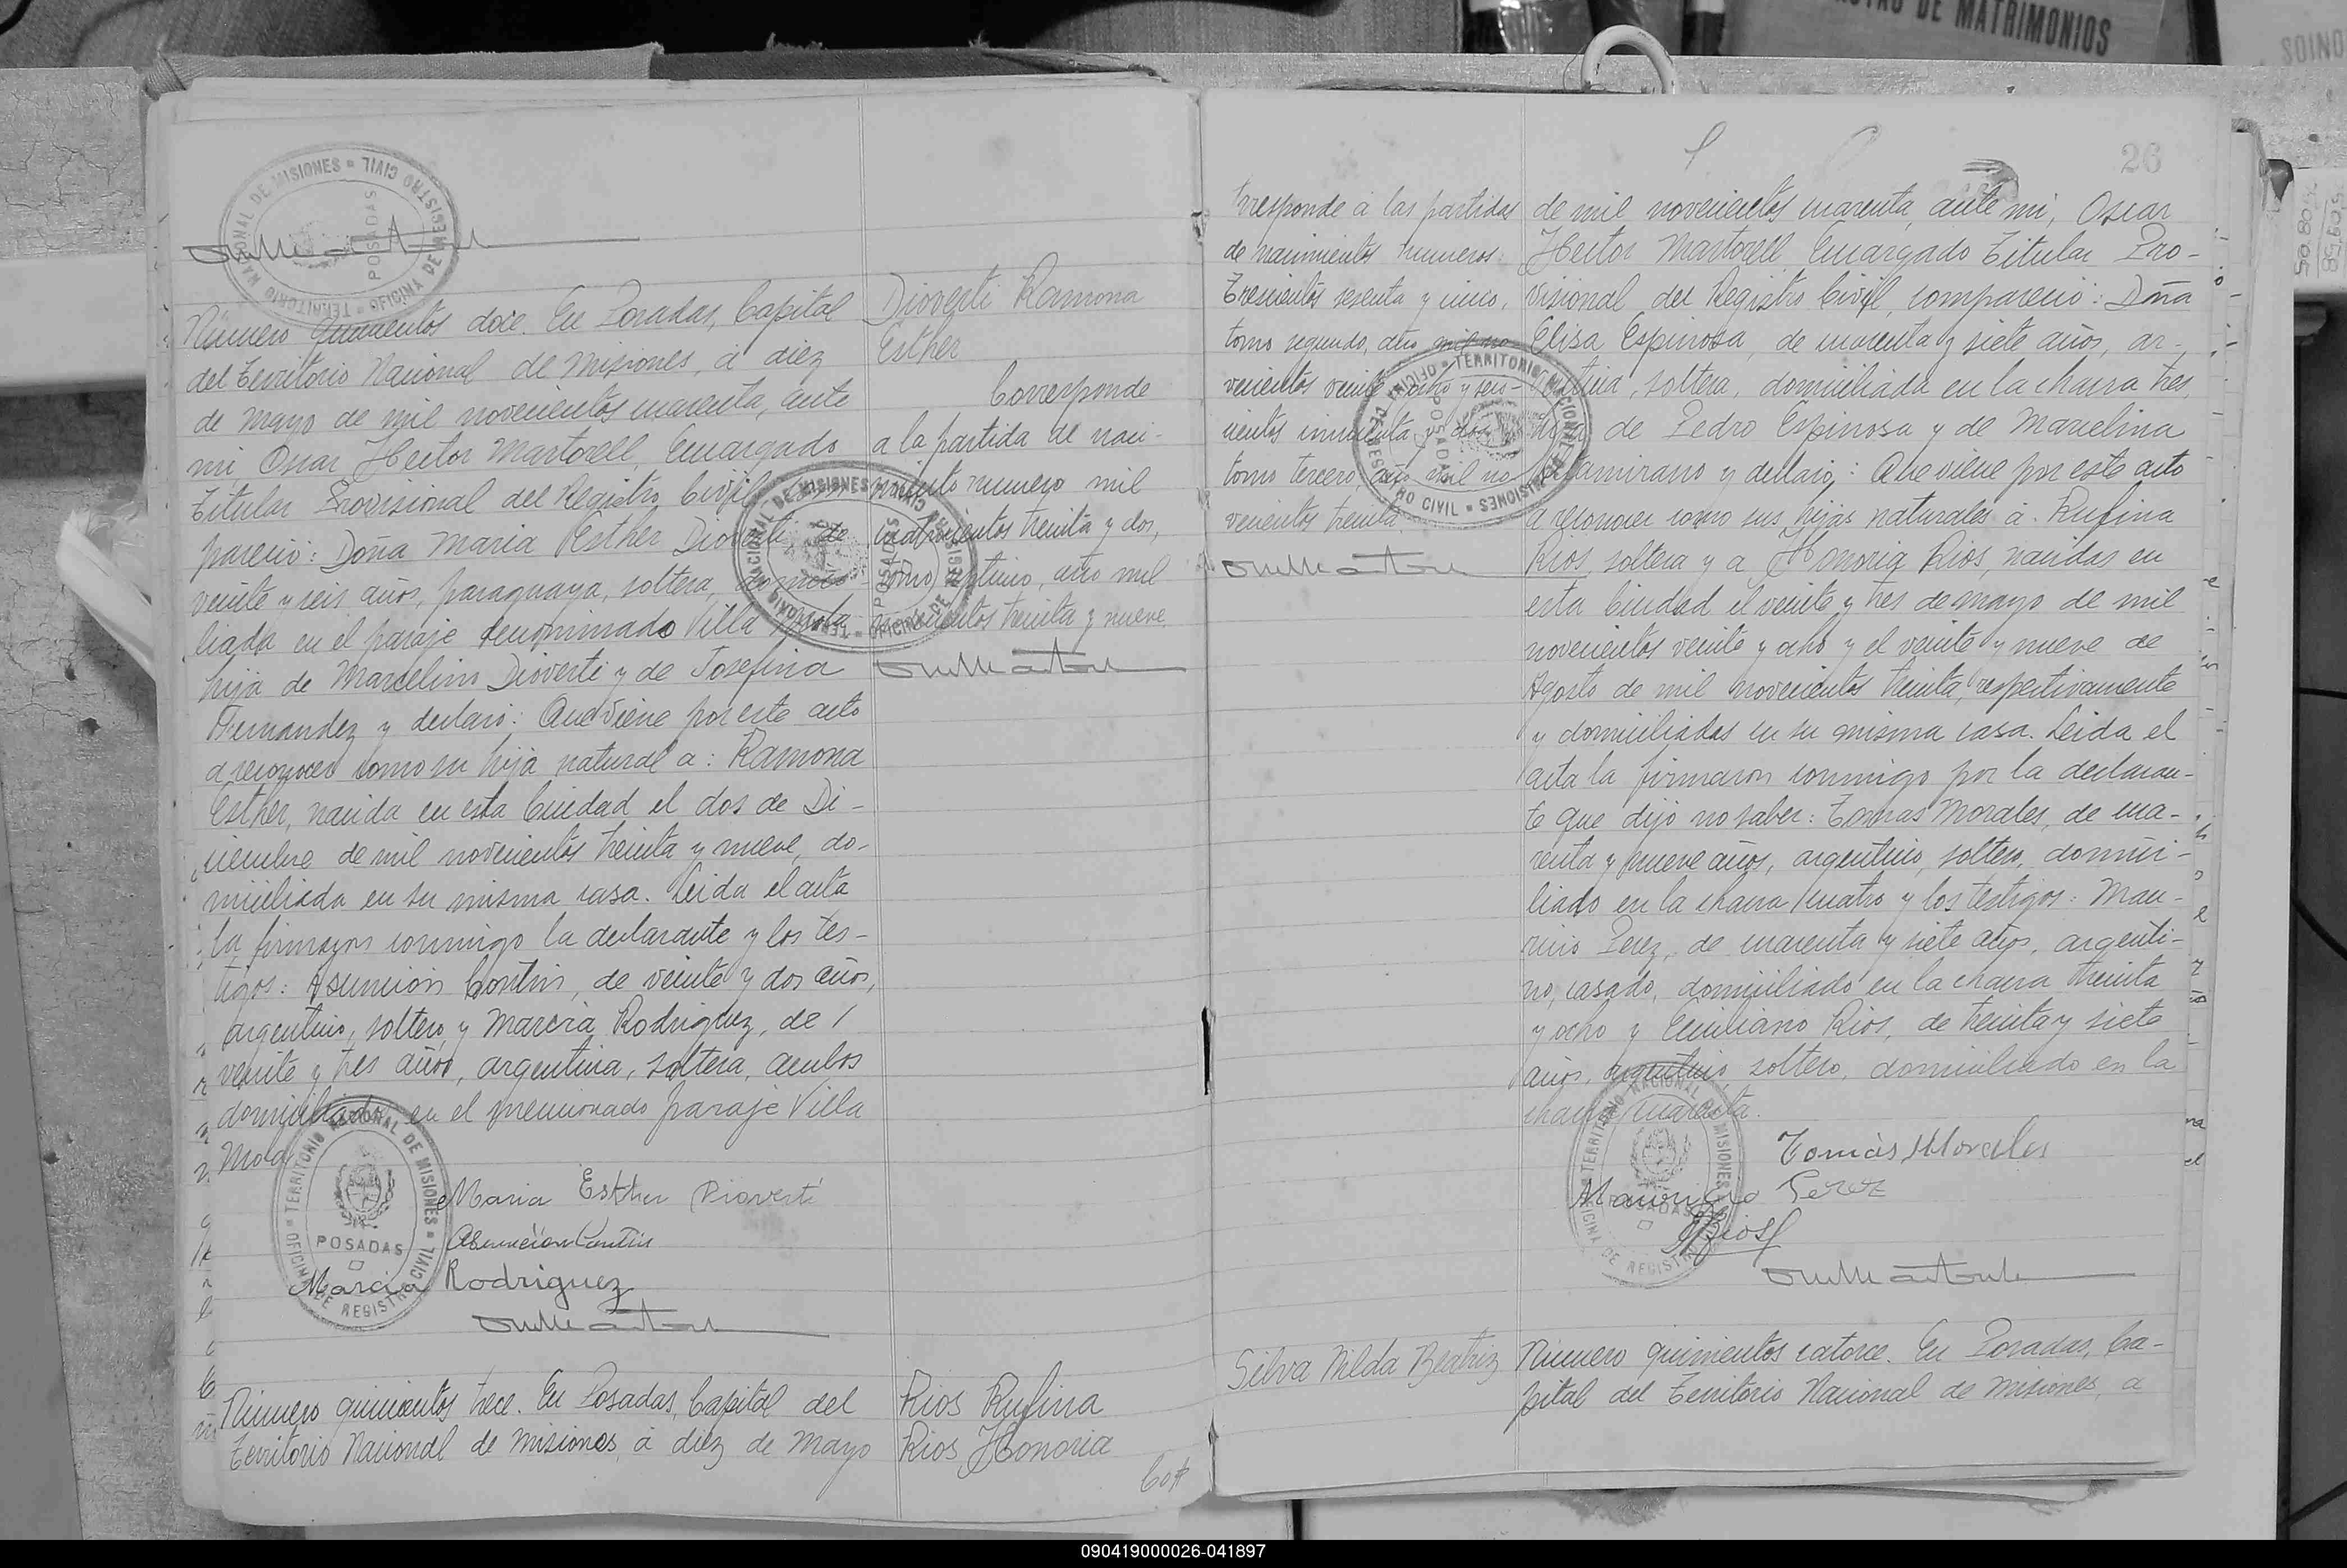 DE MATRIMONIOS
Número quinientos doce. En Posadas, Capital
del Territorio Nacional de Misiones, á diez
de Mayo de mil novecientos cuarenta, ante
mi, Oscar Hector Martorell, Encargado
Titular Provisional del Registro Civil, com
pareció: Doña Maria Esther Dioverti, de
veinte y seis años, paraguaya, soltera, domici
liada en el paraje denominado Villa Mola
hija de Marcelino Dioverti y de Josefina
Fernandez y declaró: Que viene por este acto
a reconocer como su hija natural a: Ramona
Esther, nacida en esta Ciudad el dos de Di-
ciembre de mil novecientos treinta y nueve, do-
miciliada en su misma casa. Leida el acta
la firmaron conmigo la declarante y los tes-
tigos: Asunción Contin, de veinte y dos años,
argentino, soltero, y Marcia Rodriguez, de
veinte y tres años, argentina, soltera, ambos
domiciliados en el mencionado paraje Villa
Mola
Maria Esther Dioverti
Asunción Contin
Marcia Rodriguez
Dioverti Ramona
Esther
Corresponde
a la partida de naci-
miento numero mil
cuatrocientos treinta y dos,
tomo septimo, año mil
novecientos treinta y nueve.
Número quinientos trece. En Posadas, Capital del
Territorio Nacional de Misiones, á diez de Mayo
Rios Rufina
Rios, Honoria
Cor
26
rresponde á las partidas
de nacimientos numeros:
Trecientos sesenta y cinco,
tomo segundo, año mil no
vecientos veinte y ocho y seis-
cientos cincuenta y dos
tomo tercero, año mil no
vecientos treinta.
de mil novecientos cuarenta, ante mi, Oscar
Hector Martorell Encargado Titular Pro-
visional del Registro Civil, compareció: Doña
Elisa Espinosa, de cuarenta y siete años, ar-
gentina, soltera, domiciliada en la chacra tres
hija de Pedro Espinosa y de Marcelina
Altamirano y declaró: Que viene por este acto
a reconocer como sus hijas naturales á: Rufina
Rios, soltera y a Honoria Rios, nacidas en
esta Ciudad el veinte y tres de mayo de mil
novecientos veinte y ocho y el veinte y nueve de
Agosto de mil novecientos treinta, respectivamente
y domiciliadas en su misma casa. Leida el
acta la firmaron conmigo por la declaran-
te que dijo no saber: Tomas Morales, de cua-
renta y nueve años, argentino, soltero, domici-
liado en la chacra cuatro y los testigos: Mau-
ricio Perez, de cuarenta y siete años, argenti-
no, casado, domiciliado en la chacra treinta
y ocho y Emiliano Rios, de treinta y siete
años, argentino, soltero, domiciliado en la
chacra cuarenta.
Tomás Morales
Mauricio Perez
Rios
Silva Nilda Beatriz
Número quinientos catorce. En Posadas, Ca-
pital del Territorio Nacional de Misiones, a
OFICINA DE REGISTRO CIVIL
TERRITORIO NACIONAL DE MISIONES
POSADAS
090419000026-041897